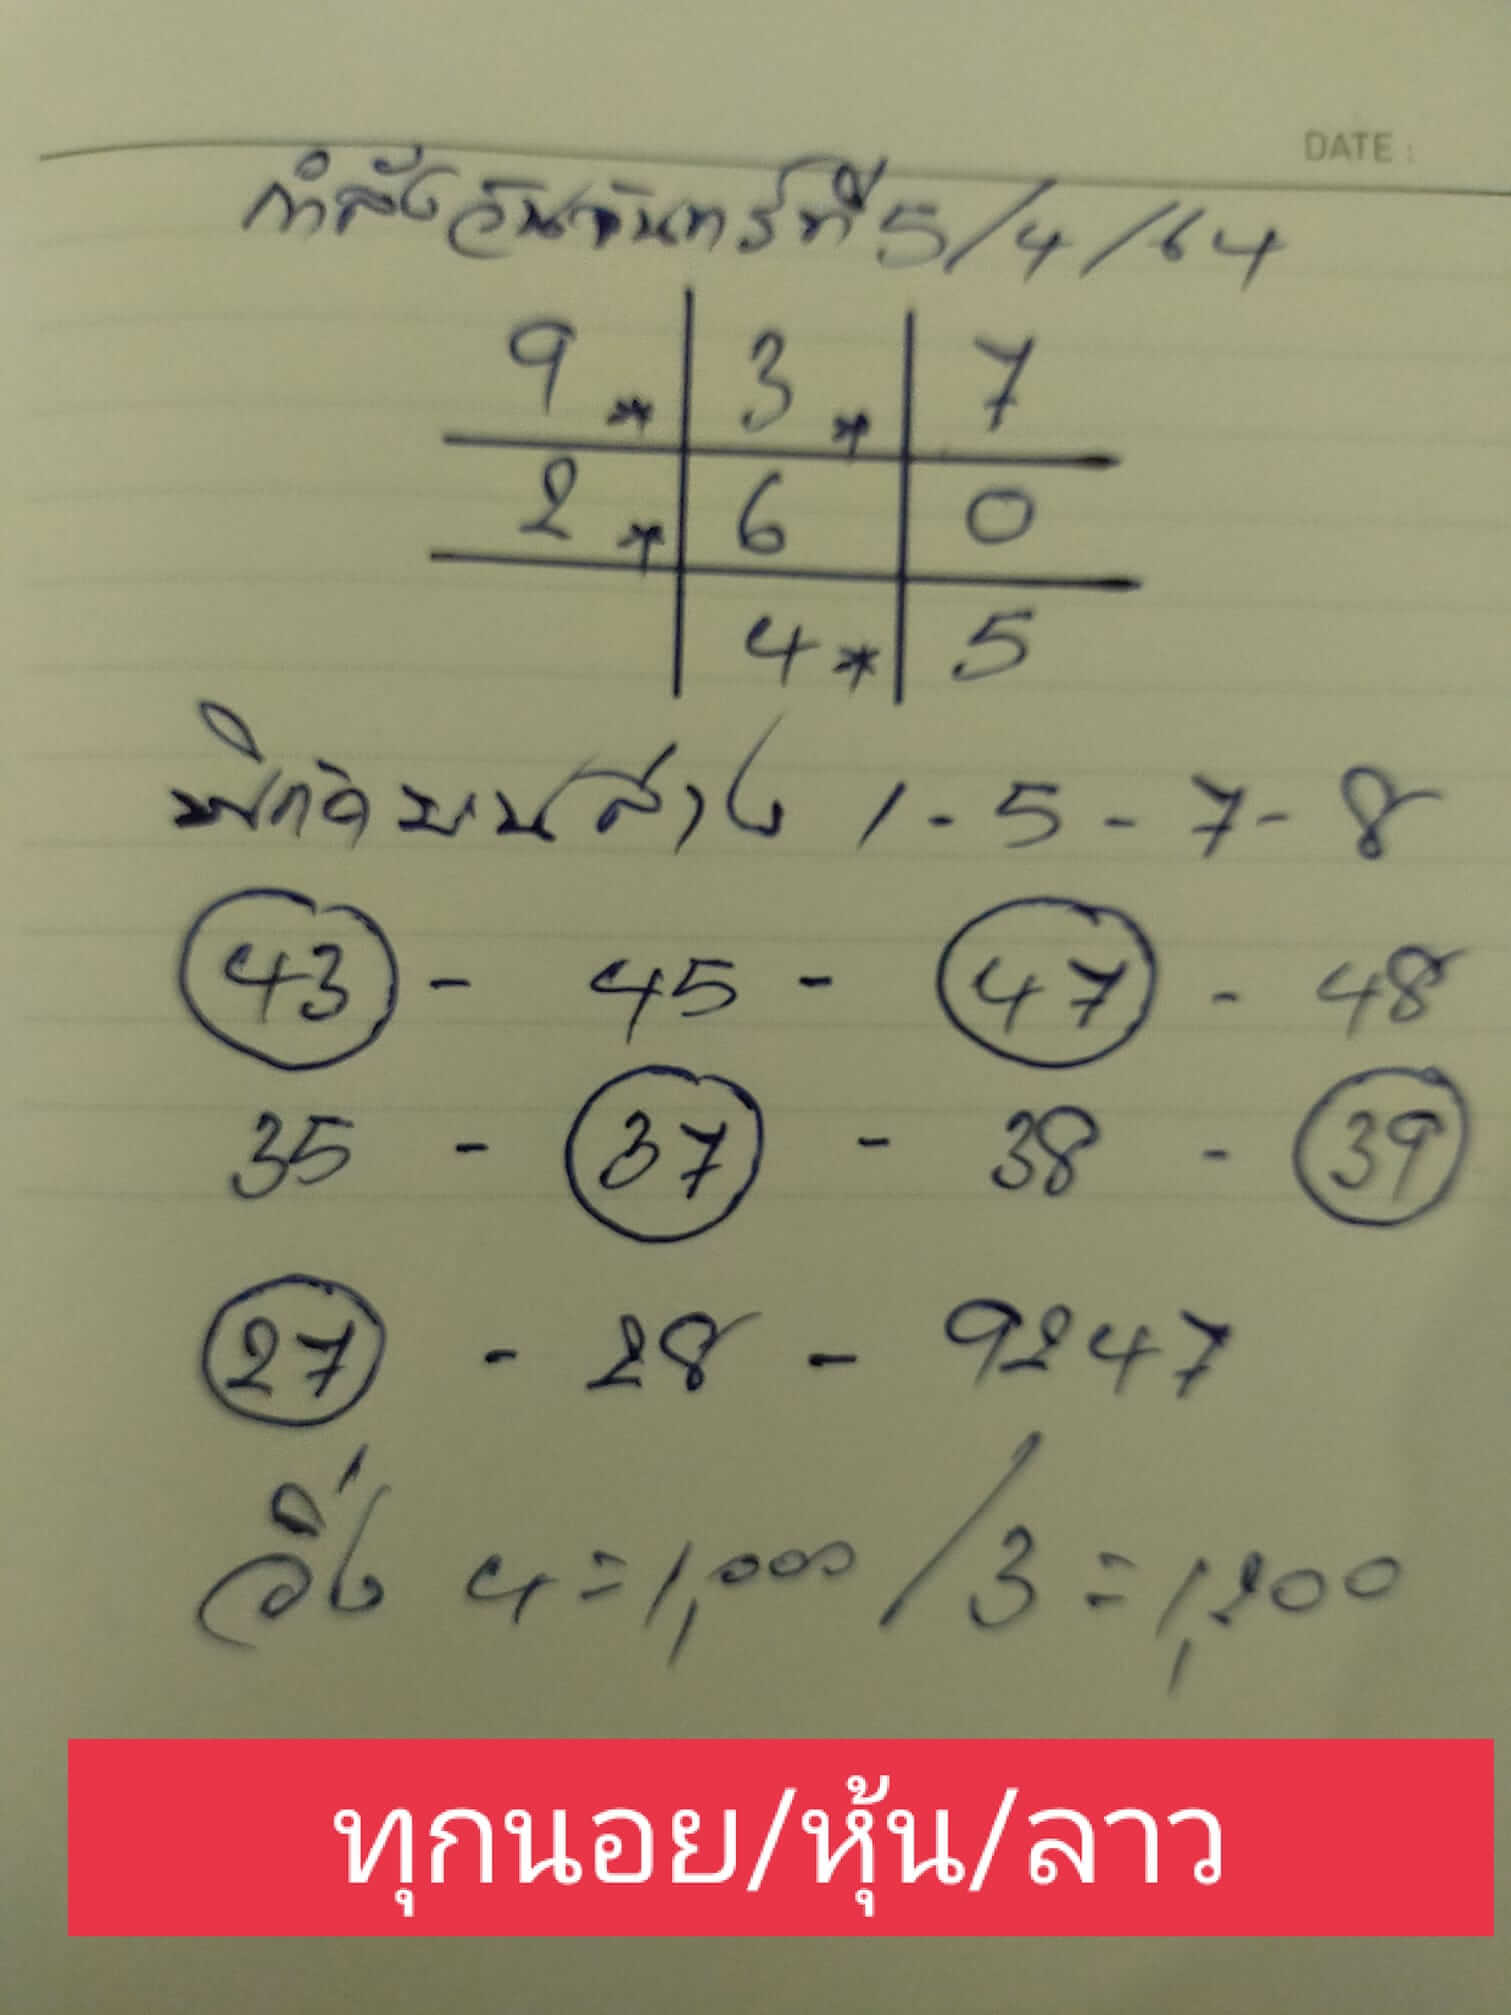 DATE :
กำลังวันจันทร์ที่ 5/4/64
9 * 3 * 7
2 * 6 0
4 * 5
พิกัดบนล่าง 1 - 5 - 7 - 8
43 - 45 - 47 - 48
35 - 37 - 38 - 39
27 - 28 - 9247
วิ่ง 4 = 1,000 / 3 = 1,200
ทุกนอย/หุ้น/ลาว